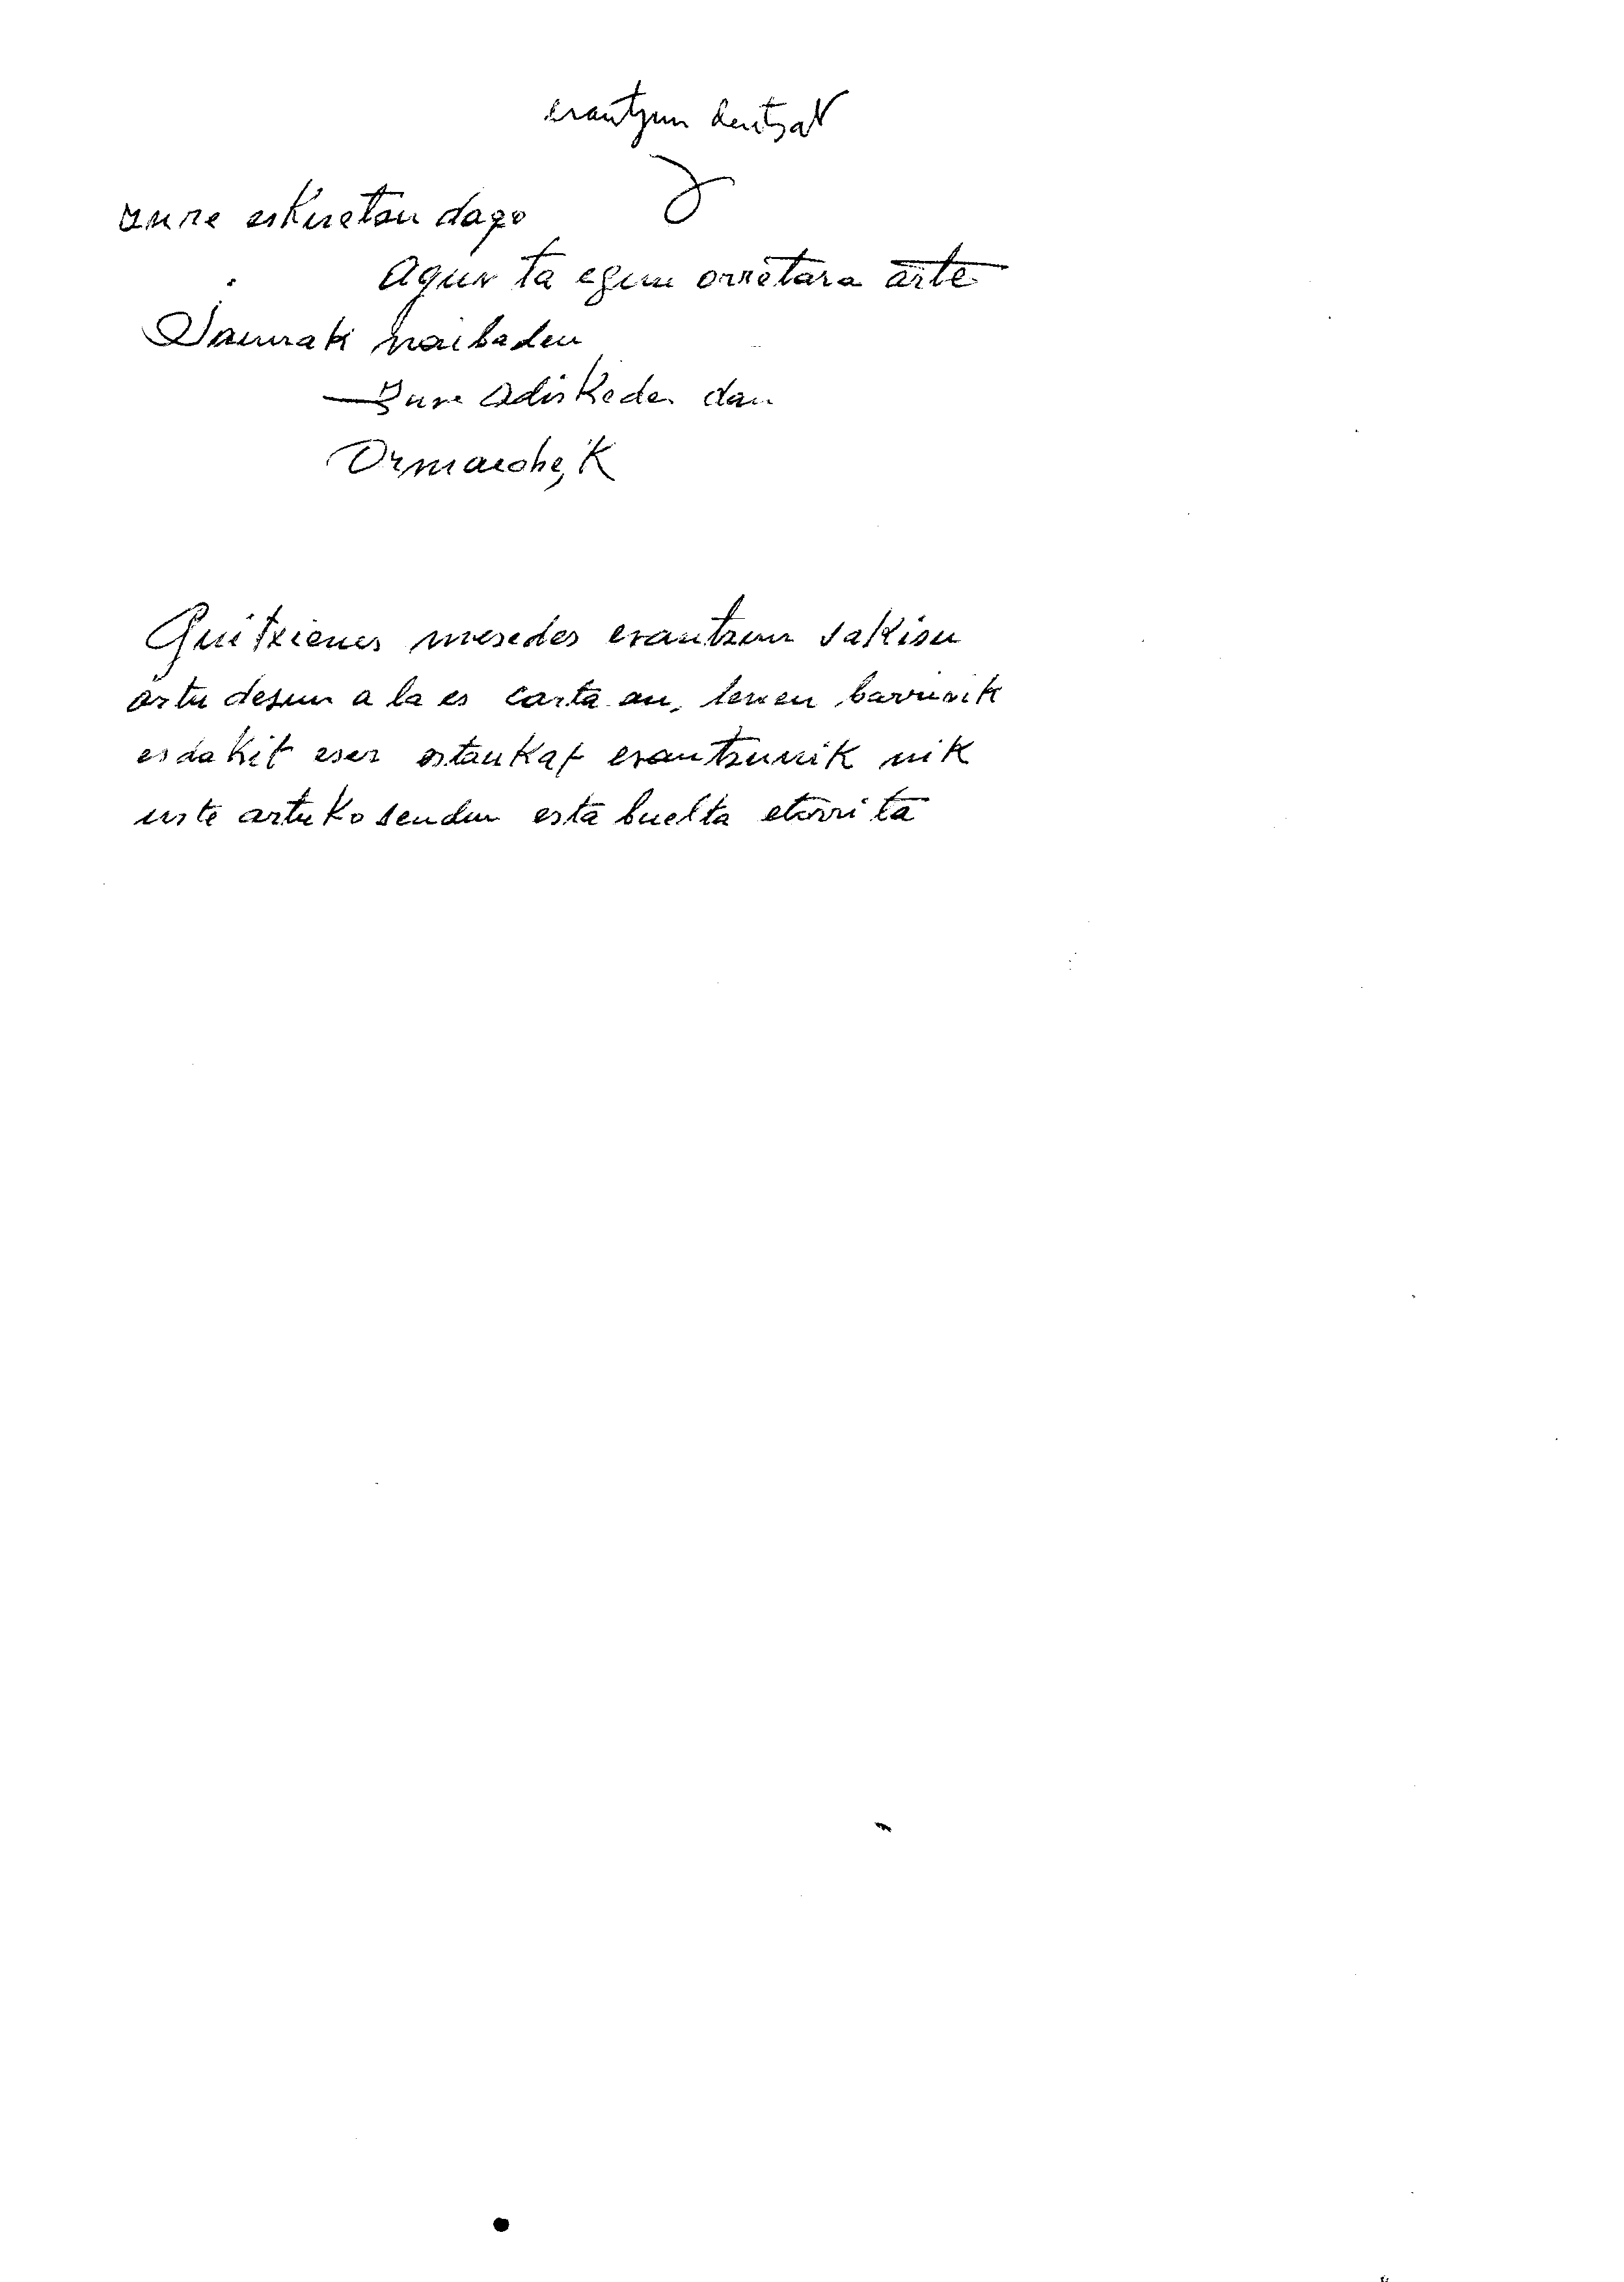 erantzun deutzat
zure eskuetan dago
Agur ta egun orretara arte
Jaunak naibadeu
Zure Adiskedea dan
Ormaeche,K
Guitxienes mesedes erantzun sakisu
artu desun a la es carta au, lenen barrurik
esdakit eser estaukat erantzunik nik
uste artuko sendun esta buelta etorri ta